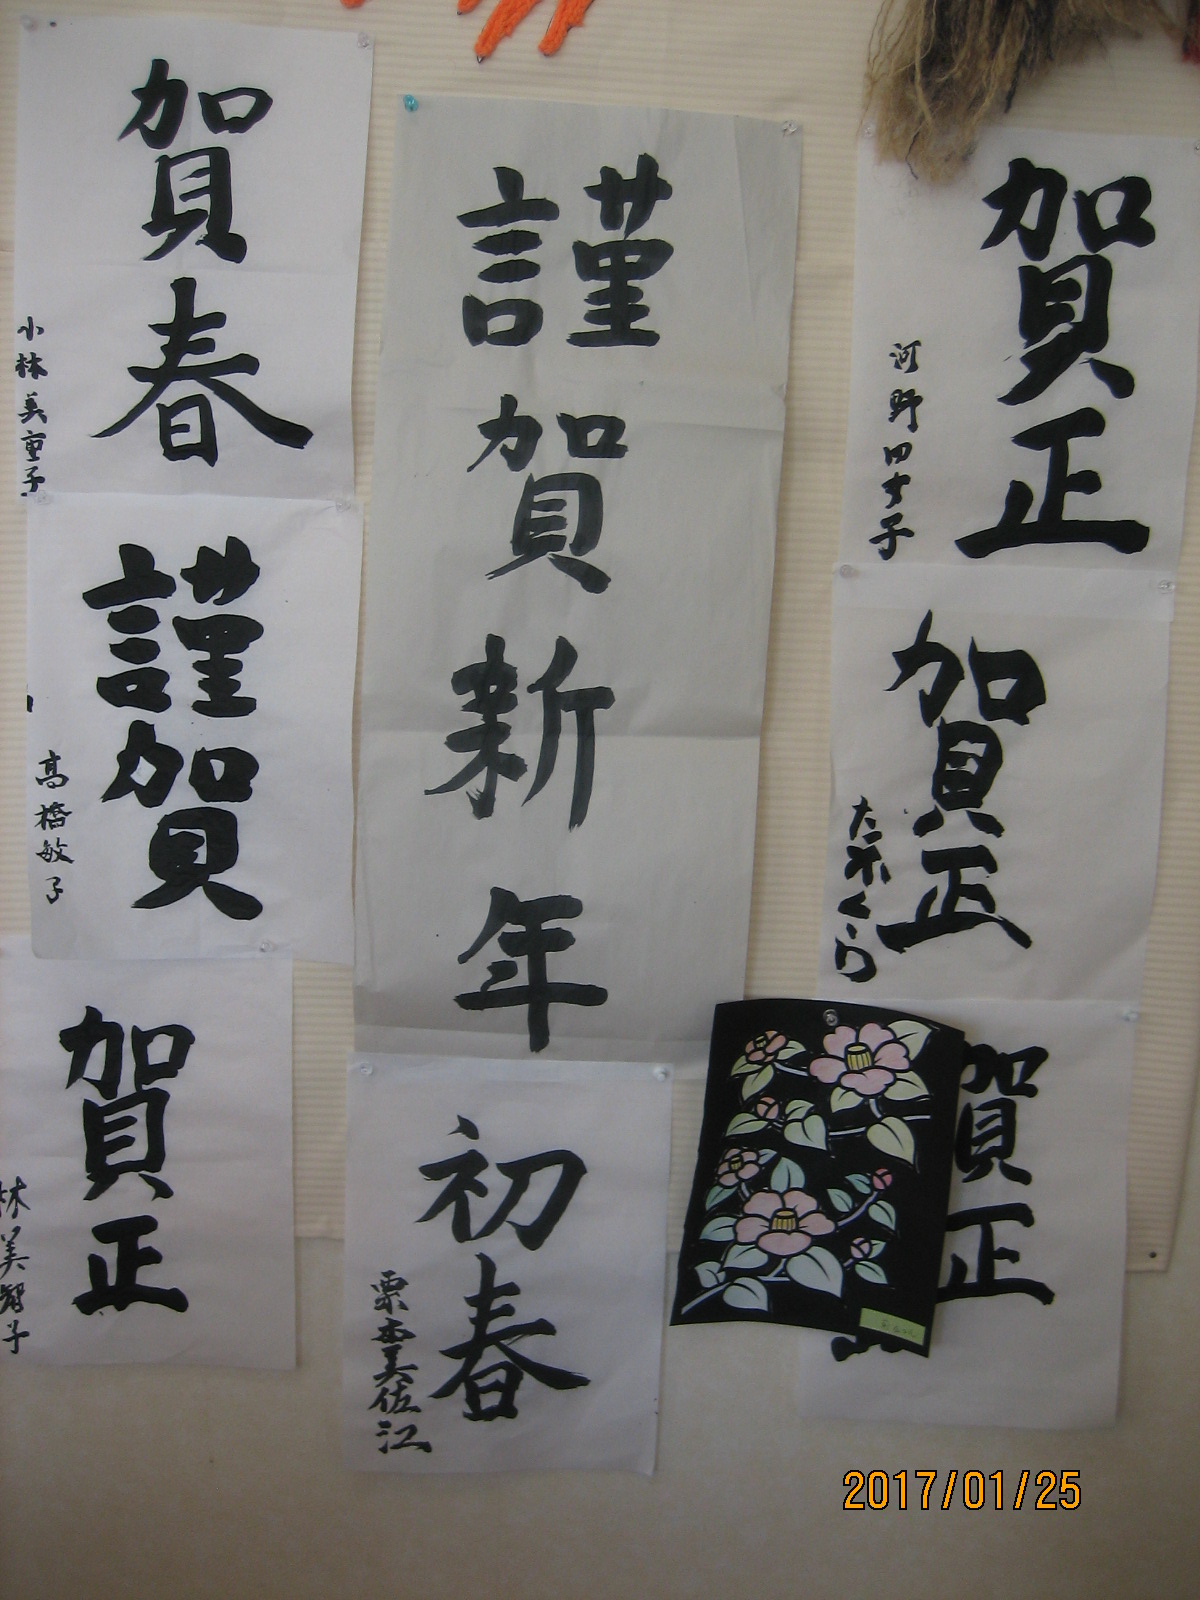 賀正
河野田士子
賀正
たかくら
賀正
謹賀新年
初春
賀春
小林美重子
謹賀
高橋敏子
賀正
林美智子
2017/01/25